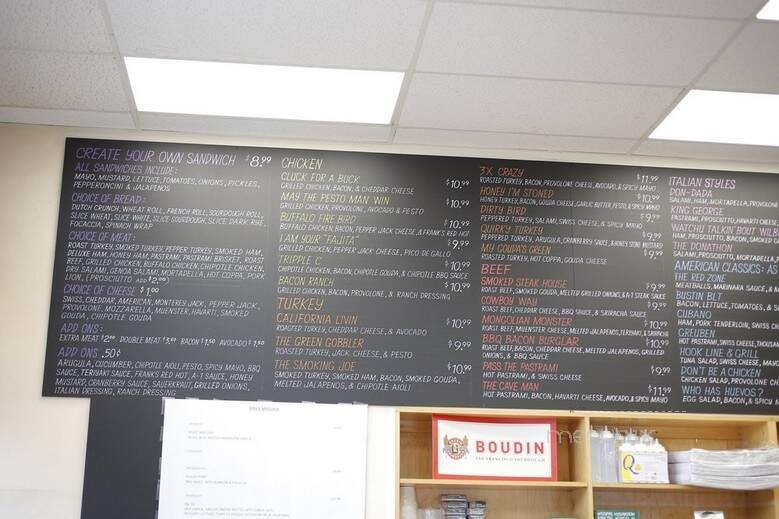 CREATE YOUR OWN SANDWICH $8.99
ALL SANDWICHES INCLUDE:
MAYO, MUSTARD, LETTUCE, TOMATOES, ONIONS, PICKLES,
PEPPERONCINI & JALAPENOS
CHOICE OF BREAD:
DUTCH CRUNCH, WHEAT ROLL, FRENCH ROLL, SOURDOUGH ROLL,
SLICE WHEAT, SLICE WHITE, SLICE SOURDOUGH, SLICE DARK RYE,
FOCACCIA, SPINACH WRAP
CHOICE OF MEAT:
ROAST TURKEY, SMOKED TURKEY, PEPPER TURKEY, SMOKED HAM,
DELUXE HAM, HONEY HAM, PASTRAMI, PASTRAMI BRISKET, ROAST
BEEF, GRILLED CHICKEN, BUFFALO CHICKEN, CHIPOTLE CHICKEN,
DRY SALAMI, GENOA SALAMI, MORTADELLA, HOT COPPA, PORK
LOIN, (PROSCIUTTO ADD $2.00)
CHOICE OF CHEESE $1.00
SWISS, CHEDDAR, AMERICAN, MONTEREY JACK, PEPPER JACK,
PROVOLONE, MOZZARELLA, MUENSTER, HAVARTI, SMOKED
GOUDA, CHIPOTLE GOUDA
ADD ONS:
EXTRA MEAT DOUBLE MEAT BACON $1.50 AVOCADO
ADD ONS .50¢
ARUGULA, CUCUMBER, CHIPOTLE AIOLI, PESTO, SPICY MAYO, BBQ
SAUCE, TERIYAKI SAUCE, FRANKS RED HOT, A-1 SAUCE, HONEY
MUSTARD, CRANBERRY SAUCE, SAUERKRAUT, GRILLED ONIONS,
ITALIAN DRESSING, RANCH DRESSING
CHICKEN
CLUCK FOR A BUCK $10.99
GRILLED CHICKEN, BACON, & CHEDDAR CHEESE
MAY THE PESTO MAN WIN $10.99
GRILLED CHICKEN, PROVOLONE, AVOCADO & PESTO
BUFFALO FIRE BIRD $10.99
BUFFALO CHICKEN, BACON, PEPPER JACK CHEESE, & FRANKS RED HOT
I AM YOUR "FAJITA" $9.99
GRILLED CHICKEN, PEPPER JACK CHEESE, PICO DE GALLO
TRIPPLE C $10.99
CHIPOTLE CHICKEN, BACON, CHIPOTLE GOUDA, & CHIPOTLE BBQ SAUCE
BACON RANCH $10.99
GRILLED CHICKEN, BACON, PROVOLONE, & RANCH DRESSING
TURKEY
CALIFORNIA LIVIN $10.99
ROASTED TURKEY, CHEDDAR CHEESE, & AVOCADO
THE GREEN GOBBLER $9.99
ROASTED TURKEY, JACK CHEESE, & PESTO
THE SMOKING JOE $10.99
SMOKED TURKEY, SMOKED HAM, BACON, SMOKED GOUDA,
MELTED JALAPENOS, & CHIPOTLE AIOLI
3X CRAZY $11.99
ROASTED TURKEY, BACON, PROVOLONE CHEESE, AVOCADO, & SPICY MAYO
HONEY I'M STONED $10.99
HONEY TURKEY, BACON, GOUDA CHEESE, GARLIC BUTTER, PESTO, & SPICY MAYO
DIRTY BIRD $9.99
PEPPERED TURKEY, SALAMI, SWISS CHEESE, & SPICY MAYO
QUIRKY TURKEY $9.99
PEPPERED TURKEY, ARUGULA, CRANBERRY SAUCE, & HONEY STONE MUSTARD
MY COUPA'S GREEN $9.99
ROASTED TURKEY, HOT COPPA, GOUDA CHEESE
BEEF
SMOKED STEAK HOUSE $9.99
ROAST BEEF, SMOKED GOUDA, MELTED GRILLED ONIONS, & A-1 STEAK SAUCE
COWBOY WAY $9.99
ROAST BEEF, CHEDDAR CHEESE, BBQ SAUCE, & SRIRACHA SAUCE
MONGOLIAN MONSTER $10.99
ROAST BEEF, MUENSTER CHEESE, MELTED JALAPENOS, TERIYAKI, & SRIRACHA
BBQ BACON BURGLAR $10.99
ROAST BEEF, BACON, CHEDDAR CHEESE, MELTED JALAPENOS, GRILLED
ONIONS, & BBQ SAUCE
PASS THE PASTRAMI $9.99
HOT PASTRAMI, & SWISS CHEESE
THE CAVE MAN $11.99
HOT PASTRAMI, BACON, HAVARTI CHEESE, AVOCADO, & SPICY MAYO
ITALIAN STYLES
DON-DADA
SALAMI, HAM, MORTADELLA, & PROVOLONE
KING GEORGE
PASTRAMI, PROSCIUTTO, HAVARTI CHEES
WATCHU TALKIN'BOUT WILB
HAM, PROSCIUTTO, BACON, SMOKED
THE DONATION
SALAMI, PROSCIUTTO, MORTADELLA,
AMERICAN CLASSICS: AS
THE RED ZONE
MEATBALLS, MARINARA SAUCE, & M
BUSTIN BLT
BACON, LETTUCE, TOMATOES, & S
CUBANO
HAM, PORK TENDERLOIN, SWISS
GREUBEN
HOT PASTRAMI, SWISS CHEESE, THOUSA
HOOK LINE & GRILL
TUNA SALAD, SWISS CHEESE, MAYO
DON'T BE A CHICKEN
CHICKEN SALAD, PROVOLONE
WHO HAS HUEVOS?
EGG SALAD, BACON, & SPICY M
BOUDIN
SAN FRANCISCO SOURDOUGH